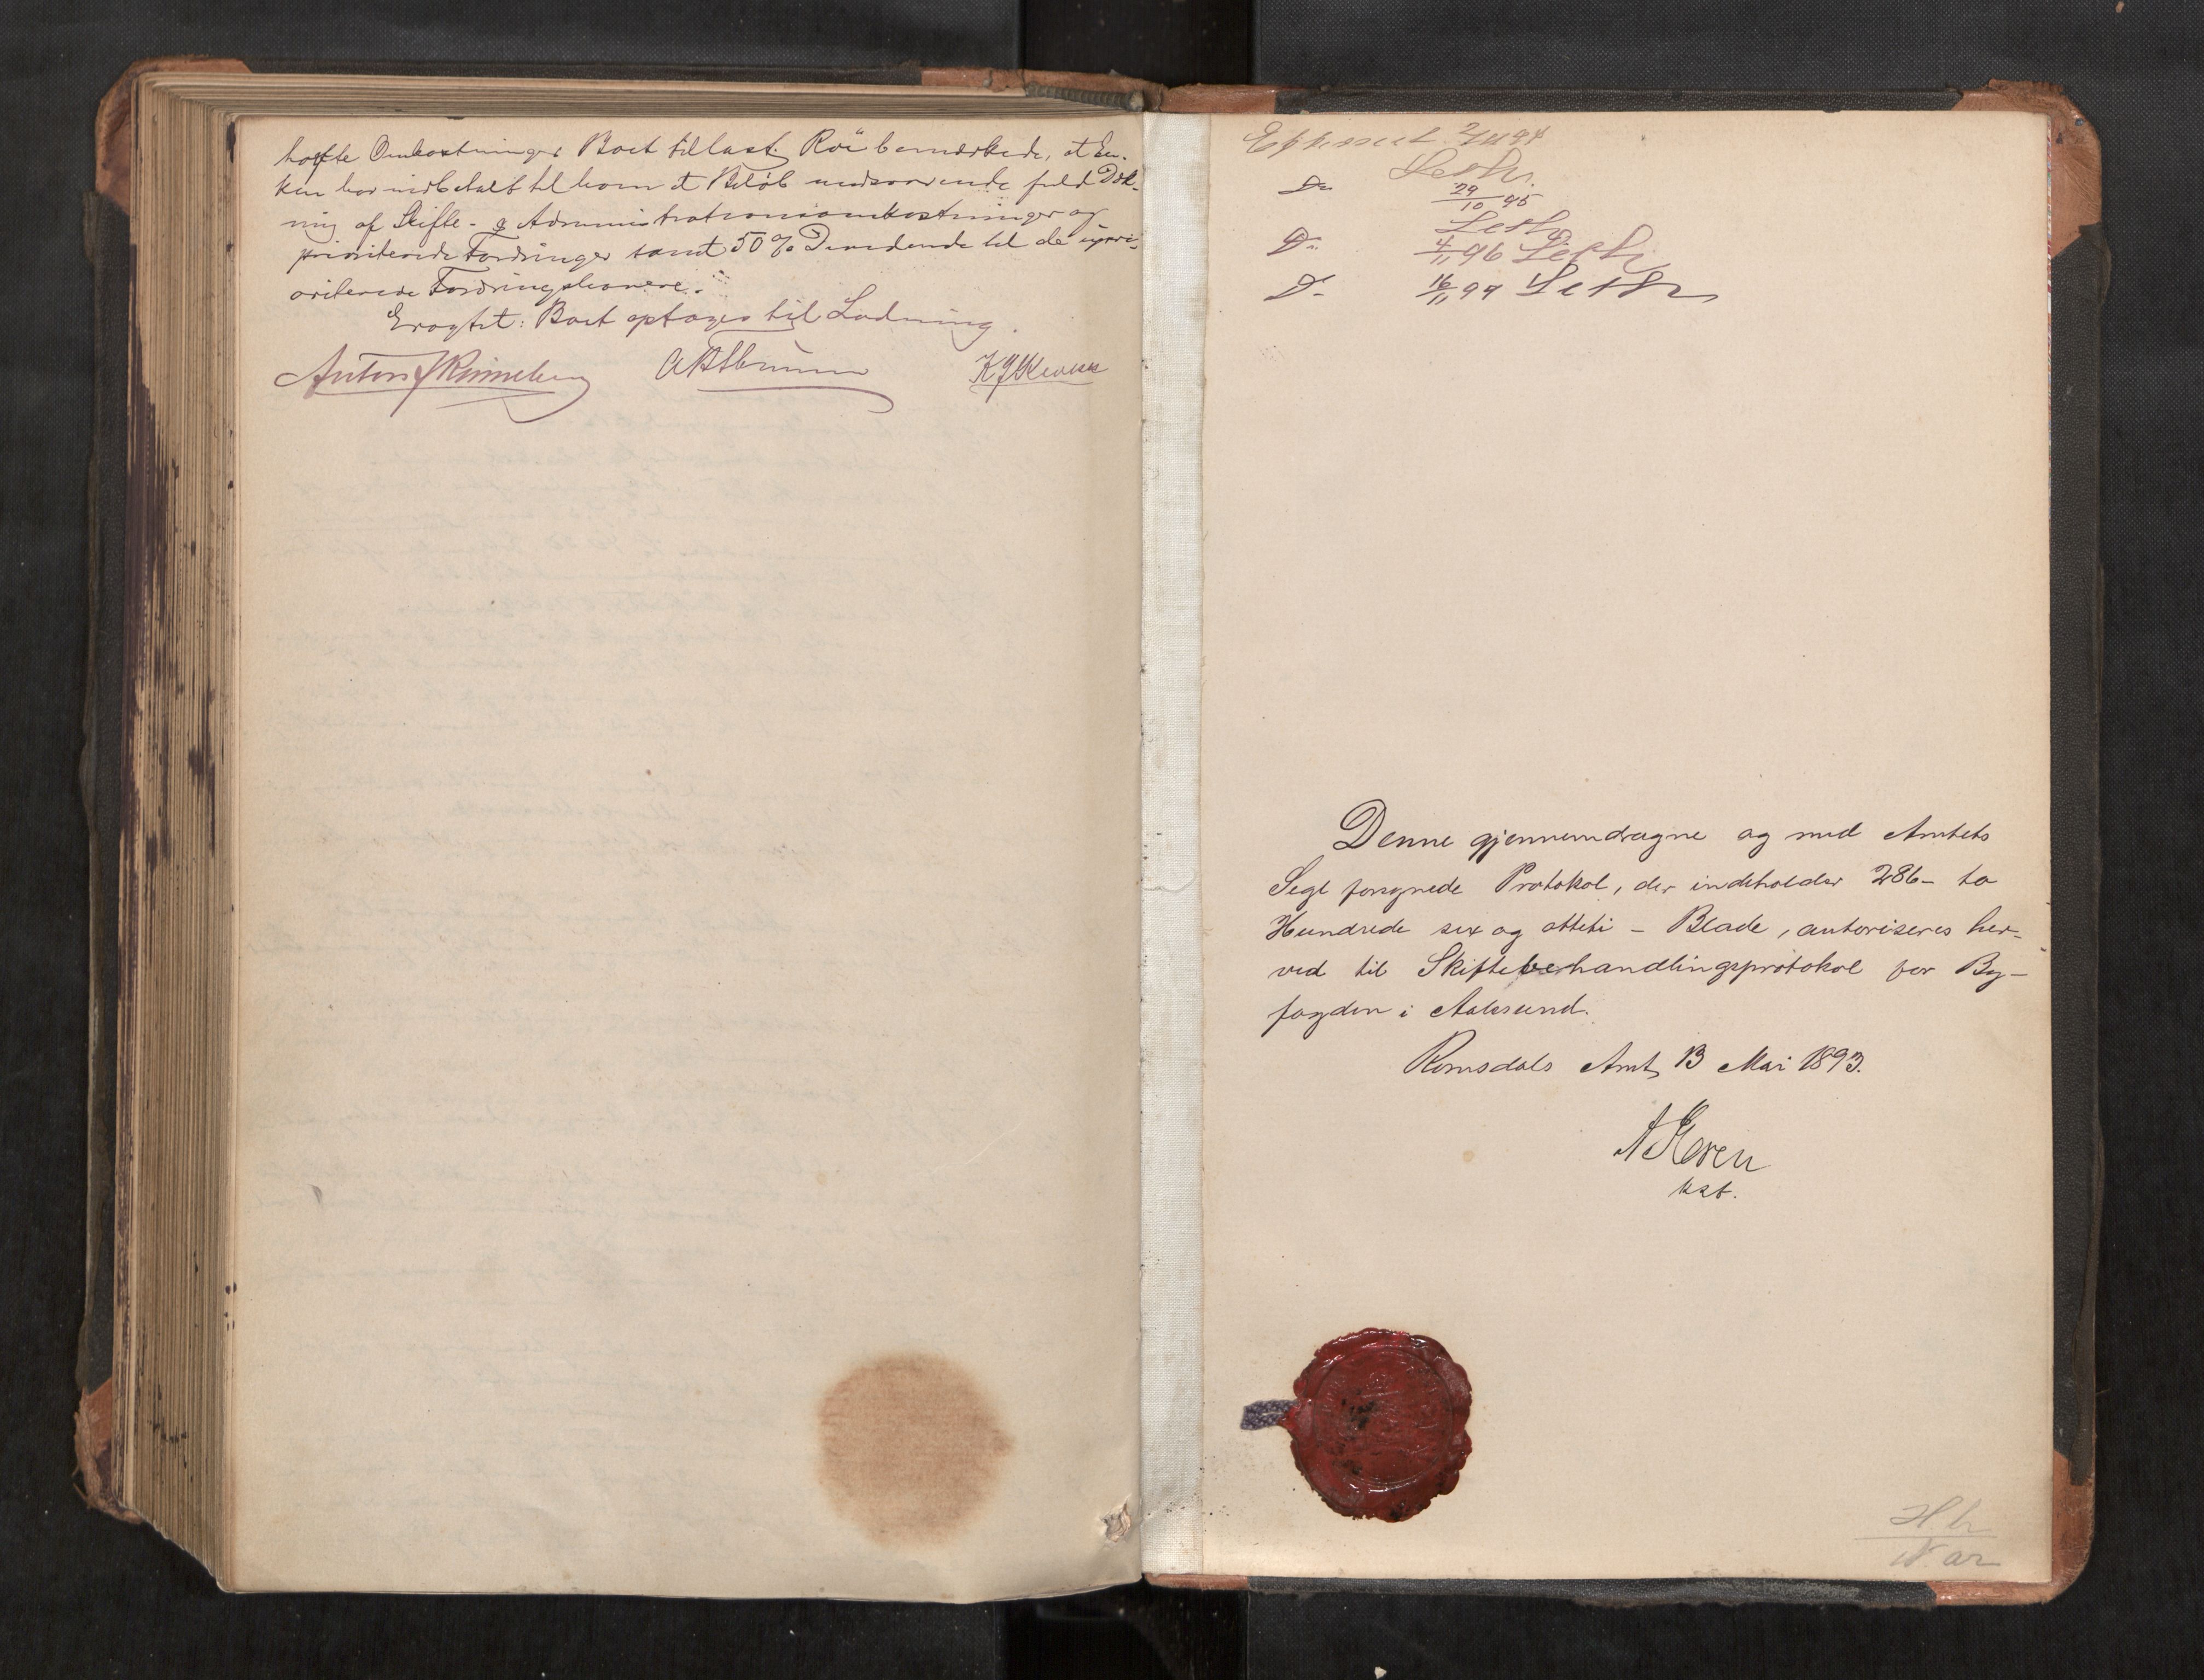 havte Omkostninger Boet tillast. Röi bemærkede, at En-
ken har indbetalt til ham et Beløb modsvarende fuld Dæk-
ning af Skifte- og Administrationsomkostninger og
prioriterede Fordringer samt 50 % Dividende til de upri-
oriterede Fordringshavere.
Eragtet: Boet optages til Slutning.
Anton J Rønneberg
K J Kverven
2/11 94
Leth.
Do 29/10 95
Leth
Do 4/11 96 Leth
Do 16/11 97 Leth
Denne gjennemdragne og med Amtets
Segl forsynede Protokol, der indeholder 286 - to
Hundrede sex og otteti - Blade, autoriseres her-
ved til Skiftebehandlingsprotokol for By-
fogden i Aalesund.
Romsdals Amt, 13 Mai 1893.
A Koren
kst.